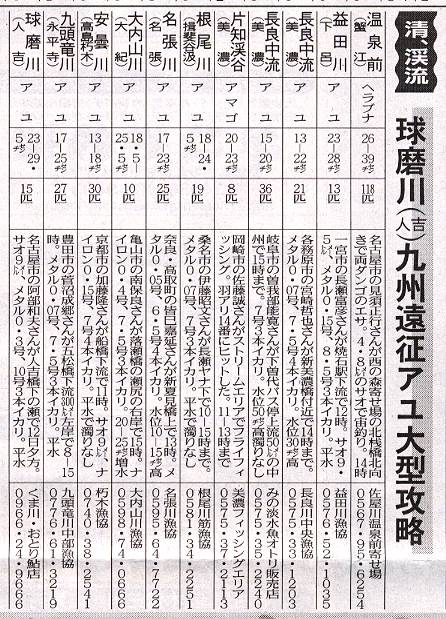 清、渓流
球磨川(人吉)九州遠征アユ大型攻略
温泉前(蟹江) ヘラブナ 26―39㌢ 118匹 名古屋市の見須正行さんが西の森寄せ場の北桟橋北向きで両ダンゴのエサ。4・8㍍のサオで宙釣り。14時 佐屋川温泉前寄せ場 0567・95・6254
益田川(下呂) アユ 23―28㌢ 13匹 一宮市の長瀬富彦さんが焼石駅下流で12時。サオ9・5㍍、メタル0・15号、8・5号3本イカリ。平水 益田川漁協 0576・52・1035
長良中流(美濃) アユ 13―22㌢ 21匹 各務原市の宮崎哲也さんが新美濃橋付近で14時まで。メタル0・07号、7・5号3本イカリ。水位30㌢高 長良川中央漁協 0575・33・1203
長良中流(美濃) アユ 15―20㌢ 36匹 岐阜市の曽我部能寛さんが下曽代バス停上流50㍍の中州で15時まで。7号3本イカリ。水位50㌢高濁りなし みの淡水魚オトリ販売店 0575・35・2240
片知渓谷(美濃) アマゴ 20―23㌢ 8匹 岡崎市の佐藤誠さんがストリームエリアでフライフィッシング。羽アリ14番にヒットした。11―13時まで 美濃フィッシングエリア 0575・37・2113
根尾川(揖斐谷汲) アユ 18―24・5㌢ 19匹 桑名市の伊藤昭文さんが長瀬ヤナ下で10―15時まで。メタル0・07号、7・5号3本イカリ。平水で濁りなし 根尾川筋漁協 0581・34・2251
名張川(名張) アユ 17―23㌢ 25匹 奈良・高取町の皆巳嘉延さんが新夏見橋上で13時。メタル0・05号、6・5号3本イカリ。水位10―15㌢高 名張川漁協 0595・64・7722
大内山川(大紀) アユ 18・5―25・5㌢ 10匹 亀山市の南保良さんが落瀬橋の瀬尻の右岸で15時。ナイロン0・4号、7・5号3本イカリ。20―25㌢増水 大内山川漁協 0598・74・0666
安曇川(高島朽木) アユ 13―18㌢ 30匹 京都市の加藤隆さんが船橋下流で11時。サオ9㍍、ナイロン0・15号、7号4本イカリ。平水で濁りなし 朽木漁協 0740・38・2541
九頭竜川(永平寺) アユ 17―25㌢ 27匹 豊田市の菅沼成郷さんが五松橋下流300㍍左岸で8―15時。メタル0・07号、7・5号3本イカリ。平水 九頭竜川中部漁協 0776・61・3219
球磨川(人吉) アユ 23―29・5㌢ 15匹 名古屋市の阿部和夫さんが人吉橋下の瀬で12日夕方。サオ9㍍、メタル0・3号、10号3本イカリ。平水 くま川・おとり鮎店 0966・24・9666